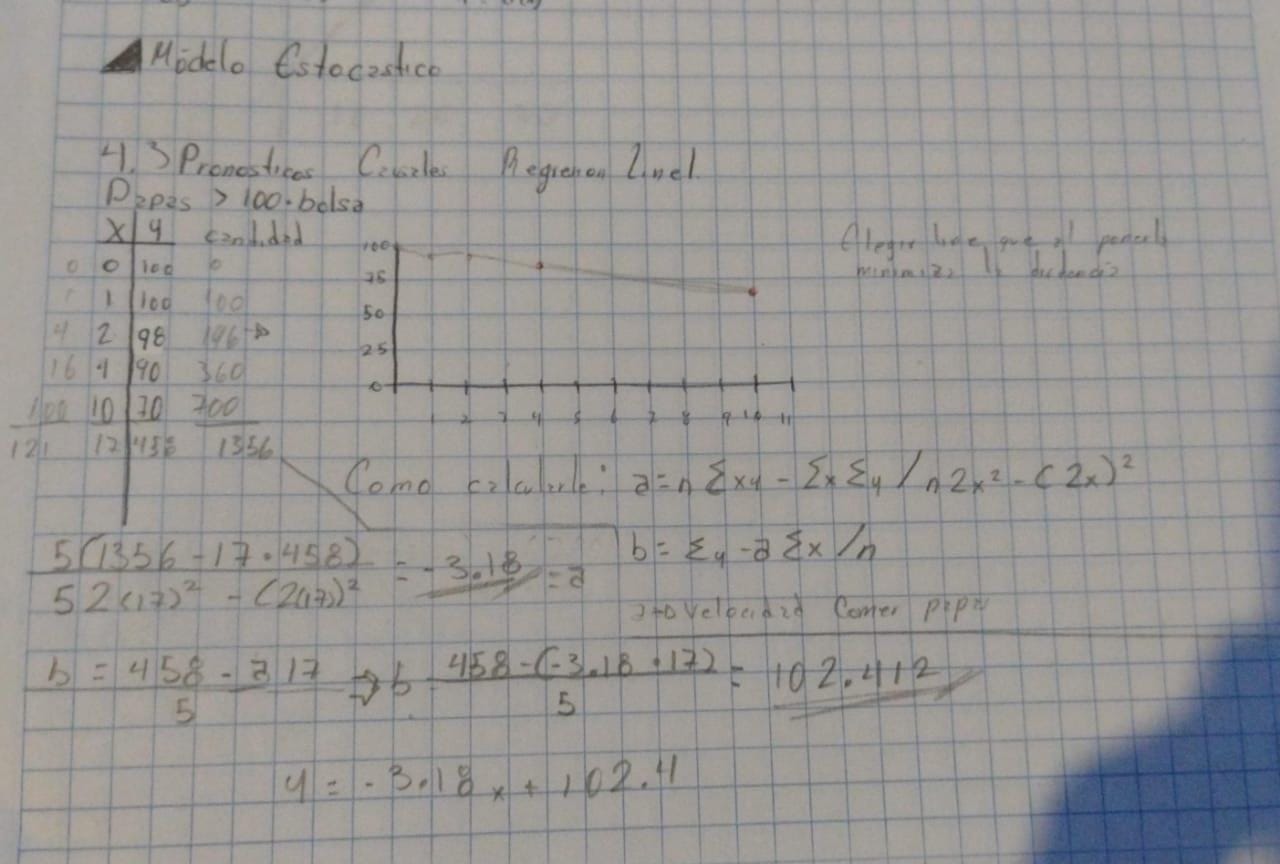 Modelo Estocastico
4.3 Pronosticos Causales Regresion Lineal
Papas > 100.bolsa
X y cantidad
0 0 100 0
1 1 100 100
4 2 98 196
16 4 90 360
100 10 70 700
121 17 458 1356
100
75
50
25
0
1 2 3 4 5 6 7 8 9 10 11
Elegir que al
minimiza la
Como calcularle: a=n Σxy - Σx Σy / n Σx² - (Σx)²
5(1356 - 17 · 458) / 5 2(17)² - (2(17))² = -3.18 = a
b = Σy - a Σx / n
velocidad Comer papa
b = 458 - a 17 / 5 → b 458 - (-3.18 · 17) / 5 = 102.412
y = -3.18 x + 102.4